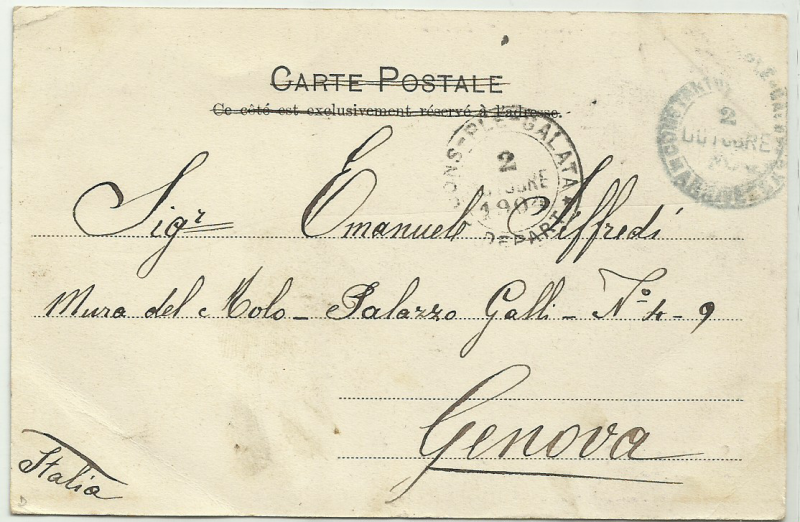 CARTE POSTALE
Ce côté est exclusivement réservé à l'adresse.
CONS-PLE-GALATA
2
OCTOBRE
1904
DEPART
2
OCTOBRE
Sigr Emanuele Giffredi
Mura del Molo - Palazzo Galli - No 4 - 9
Genova
Italia